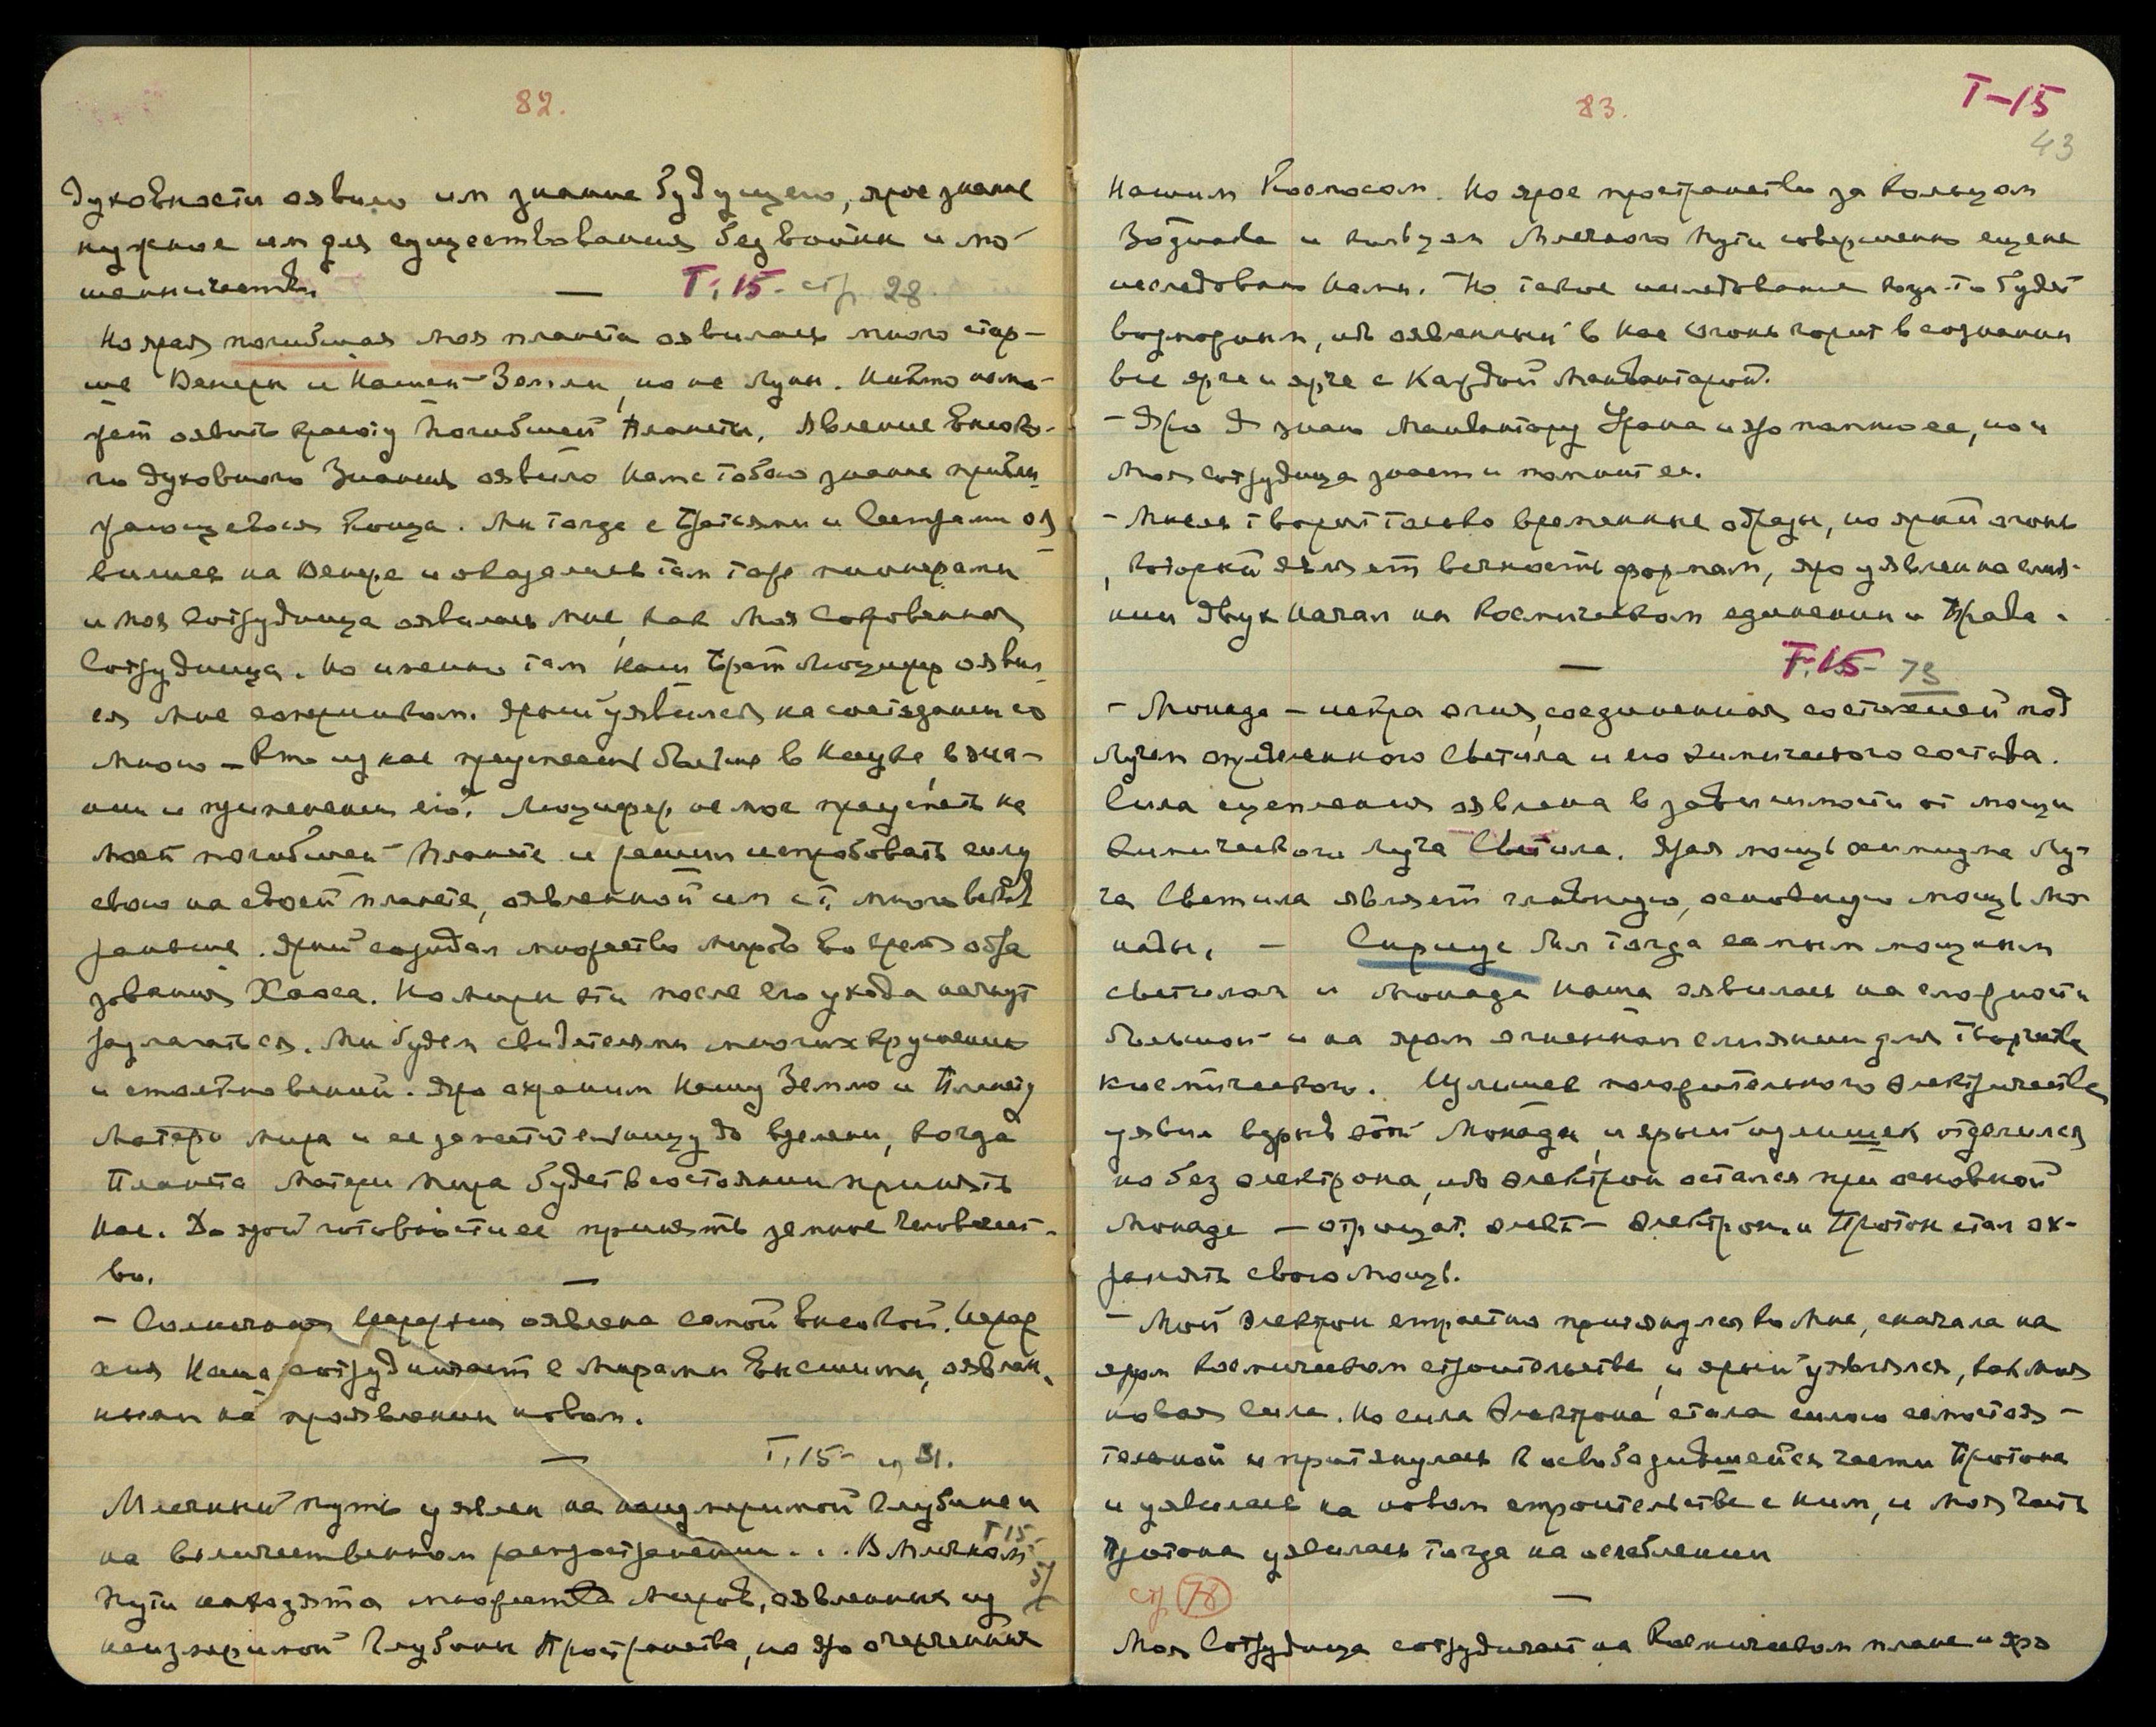 82.
Духовности оявило им знание будущего, ярое знание
нужное им для существования без войн и мо-
шенничества
— Т. 15 - стр. 28.
Но ярая погибшая моя планета оявилась много стар-
ше Венеры и Нашей Земли, но не Луны. Никто не мо-
жет оявить красоту погибшей Планеты. Явление Высоко-
го духовного Знания оявило Нам с тобою знание прибли-
жающегося Конца. Мы тогда с Братьями и Сестрами оя-
вились на Венере и оказались там тоже пионерами
и моя Сотрудница оявилась мне, как Моя Сокровенная
Сотрудница. Но именно там Наш Брат Люцифер оявил-
ся Мне соперником. Ярый уявился на состязании со
Мною — Кто из нас преуспеет больше в Науке, в зна-
нии и применении его. Люцифер не мог преуспеть на
моей погибшей Планете и решил испробовать силу
свою на своей планете, оявленной им
раньше. Ярый созидал множество миров во время обра
зования Хаоса. Но миры эти после его ухода начнут
разлагаться. Мы будем свидетелями многих крушений
и столкновений. Яро охраним Нашу Землю и Планету
Матери Мира и ее заместительницу до времени, когда
Планета Матери Мира будет в состоянии принять
нас. До ярой готовности ее принять земное человечест-
во.
—
- Солнечная Иерархия оявлена самой Высокой. Иерар
хия Наша сотрудничает с Мирами Высшими, оявлен-
ными на проявлении новом.
— Т. 15 - 51.
Млечный путь уявлен на неизмеримой глубине и
на величественном распространении... В Млечном
Т 15-
51
Пути находятся множества Миров, оявленных из
неизмеримой Глубины Пространства, но яро очерченная
83.
Т-15
43
Нашим Космосом. Но ярое пространство за Кольцом
Зодиака и кольцом Млечного Пути совершенно еще не
исследовано Нами. Но такое исследование когда-то будет
возможным, ибо оявленный в нас огонь горит в сознании
все ярче и ярче с каждой Манвантарой.
- Яро Я знаю Манвантару Урана и яро помню ее, но и
Моя Сотрудница знает и помнит ее.
- Мысль творит только временные образы, но яркий огонь
, который являет вечность формам, яро уявлен на слия-
нии двух Начал на Космическом единении и Права.
— Т. 15 - 73
- Монада — искра огня, соединенная со стихией под
Лучом определенного Светила и его химического состава.
Сила сцепления оявлена в зависимости от мощи
Химического луча Светила. Ярая мощь химизма Лу-
ча Светила являет главную, основную мощь Мо-
нады. — Сириус был тогда самым мощным
светилом и Монада Наша оявилась на сложности
большой и на яром огненном слиянии для творчества
космического. Излишек положительного электричества
уявил взрыв этой Монады, и ярый излишек отделился
но без электрона, ибо электрон остался при основной
Монаде — отрицат. элект - Электрон. и Протон стал ох-
ранять свою Мощь.
- Мой Электрон страстно притянулся ко Мне, сначала на
яром Космическом строительстве, и ярый уявлялся, как Моя
новая сила. Но сила Электрона стала силою самостоя-
тельной и притянулась к освободившейся части Протона
и уявилась на новом строительстве с ним, и моя часть
Протона уявилась тогда на ослаблении
—
стр. 78
Моя Сотрудница сотрудничает на Космическом плане и яро